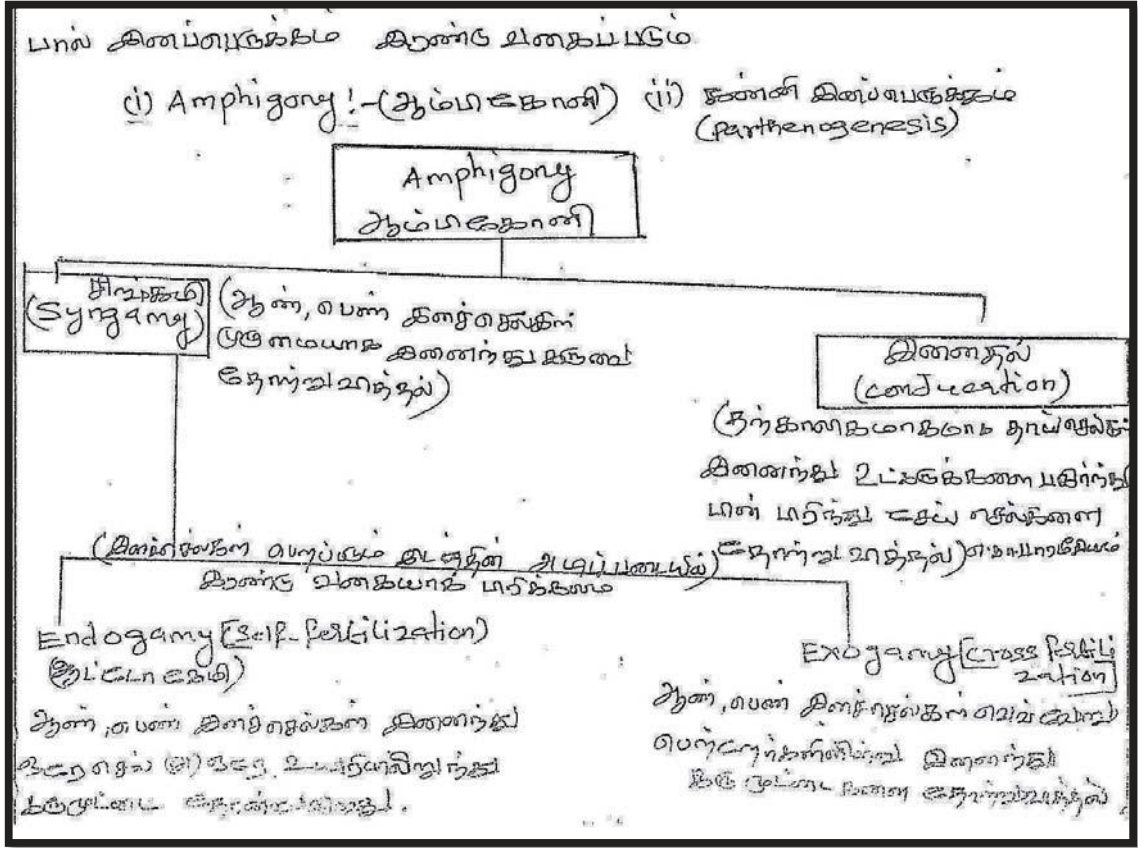 பால் இனப்பெருக்கம் இரண்டு வகைப்படும்
(i) Amphigony :-(ஆம்பிகோனி) (ii) கன்னி இனப்பெருக்கம்
(parthenogenesis)
Amphigony
ஆம்பிகோனி
சின்கமி
(Syngamy)
(ஆண், பெண் இனச்செல்கள்
முழுமையாக இணைந்து கருவை
தோற்றுவாத்தல்)
இணைதல்
(conJucation)
(தற்காலிகமாக தாய்செல்கள்
இணைந்து உட்கருக்களை பகிர்ந்து
பின் பிரிந்து சேய் செல்களை
தோற்றுவாத்தல்) எ.கா பாரமீசியம்
(இனச்செல்கள் பெறப்படும் இடத்தின் அடிப்படையில்)
இரண்டு வகையாக பிரிக்கலாம்
Endogamy [Self-fertilization)
(ஆட்டோகேமி)
ஆண், பெண் இனச்செல்கள் இணைந்து
ஒரே செல் (அ) ஒரே உயிரியிலிருந்து
கருமுட்டை
Exogamy [cross fertili
zation]
ஆண், பெண் இனச்செல்கள் வெவ்வேறு
பெற்றோர்களிலிருந்து இணைந்து
கரு முட்டைகளை தோற்றுவாத்தல்